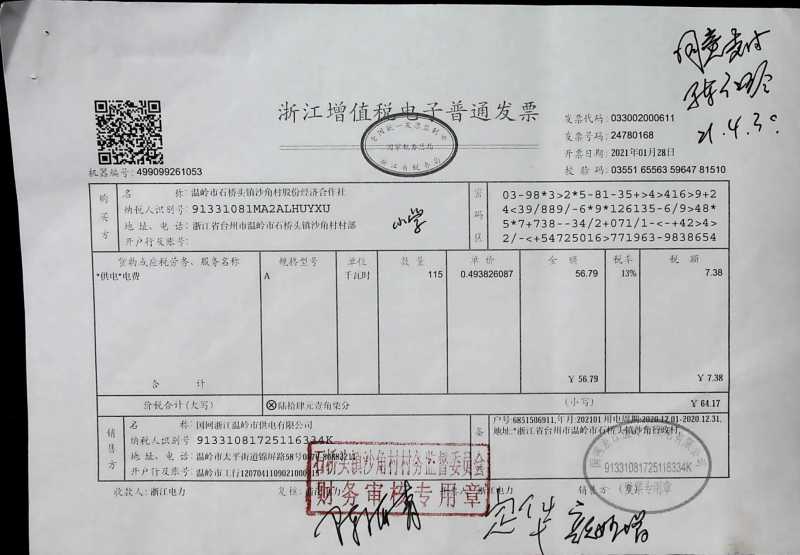 同意支付
21.4.30
浙江增值税电子普通发票
全国统一发票监制章
国家税务总局
浙江省税务局
发票代码: 033002000611
发票号码: 24780168
开票日期: 2021年01月28日
校验码: 03551 65563 59647 81510
机器编号: 499099261053
购买方
名称: 温岭市石桥头镇沙角村股份经济合作社
纳税人识别号: 91331081MA2ALHUYXU
地址、电话: 浙江省台州市温岭市石桥头镇沙角村村部
开户行及账号:
小学
密码区
03-98*3>2*5-81-35+>4>416>9+2
4<39/889/-6*9*126135-6/9>48*
5*7+738--34/2+071/1-<-+42>4>
2/-<+54725016>771963-9838654
货物或应税劳务、服务名称 规格型号 单位 数量 单价 金额 税率 税额
*供电*电费 A 千瓦时 115 0.493826087 56.79 13% 7.38
合计 ¥ 56.79 ¥ 7.38
价税合计(大写) ⊗陆拾肆元壹角柒分 (小写) ¥ 64.17
销售方
名称: 国网浙江温岭市供电有限公司
纳税人识别号: 91331081725116334K
地址、电话: 温岭市太平街道锦屏路58号
开户行及账号: 温岭市工行1207041109021000215
备
户号:6851506911,年月:202101 用电周期:2020.12.01-2020.12.31,
地址:*浙江省台州市温岭市石桥头镇沙角行政村,
91331081725116334K
发票专用章
石桥头镇沙角村村务监督委员会
财务审核专用章
收款人: 浙江电力 复核: 浙江电力 浙江电力 销售方: (章)